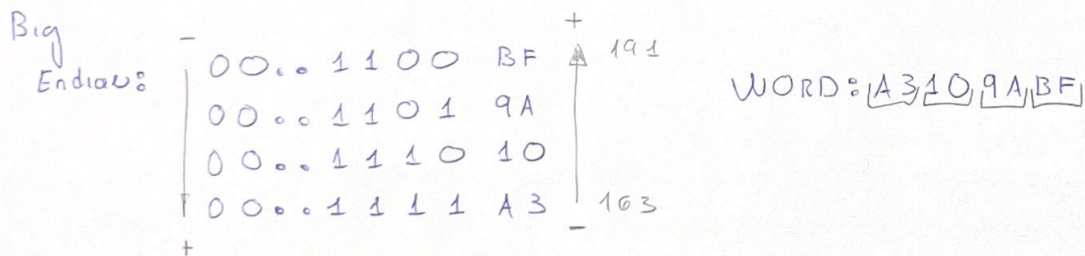 Big
Endian:
- +
00.. 1100 BF 191
00.. 1101 9A
00.. 1110 10
00.. 1111 A3 163
+ -
WORD: A3 10 9A BF